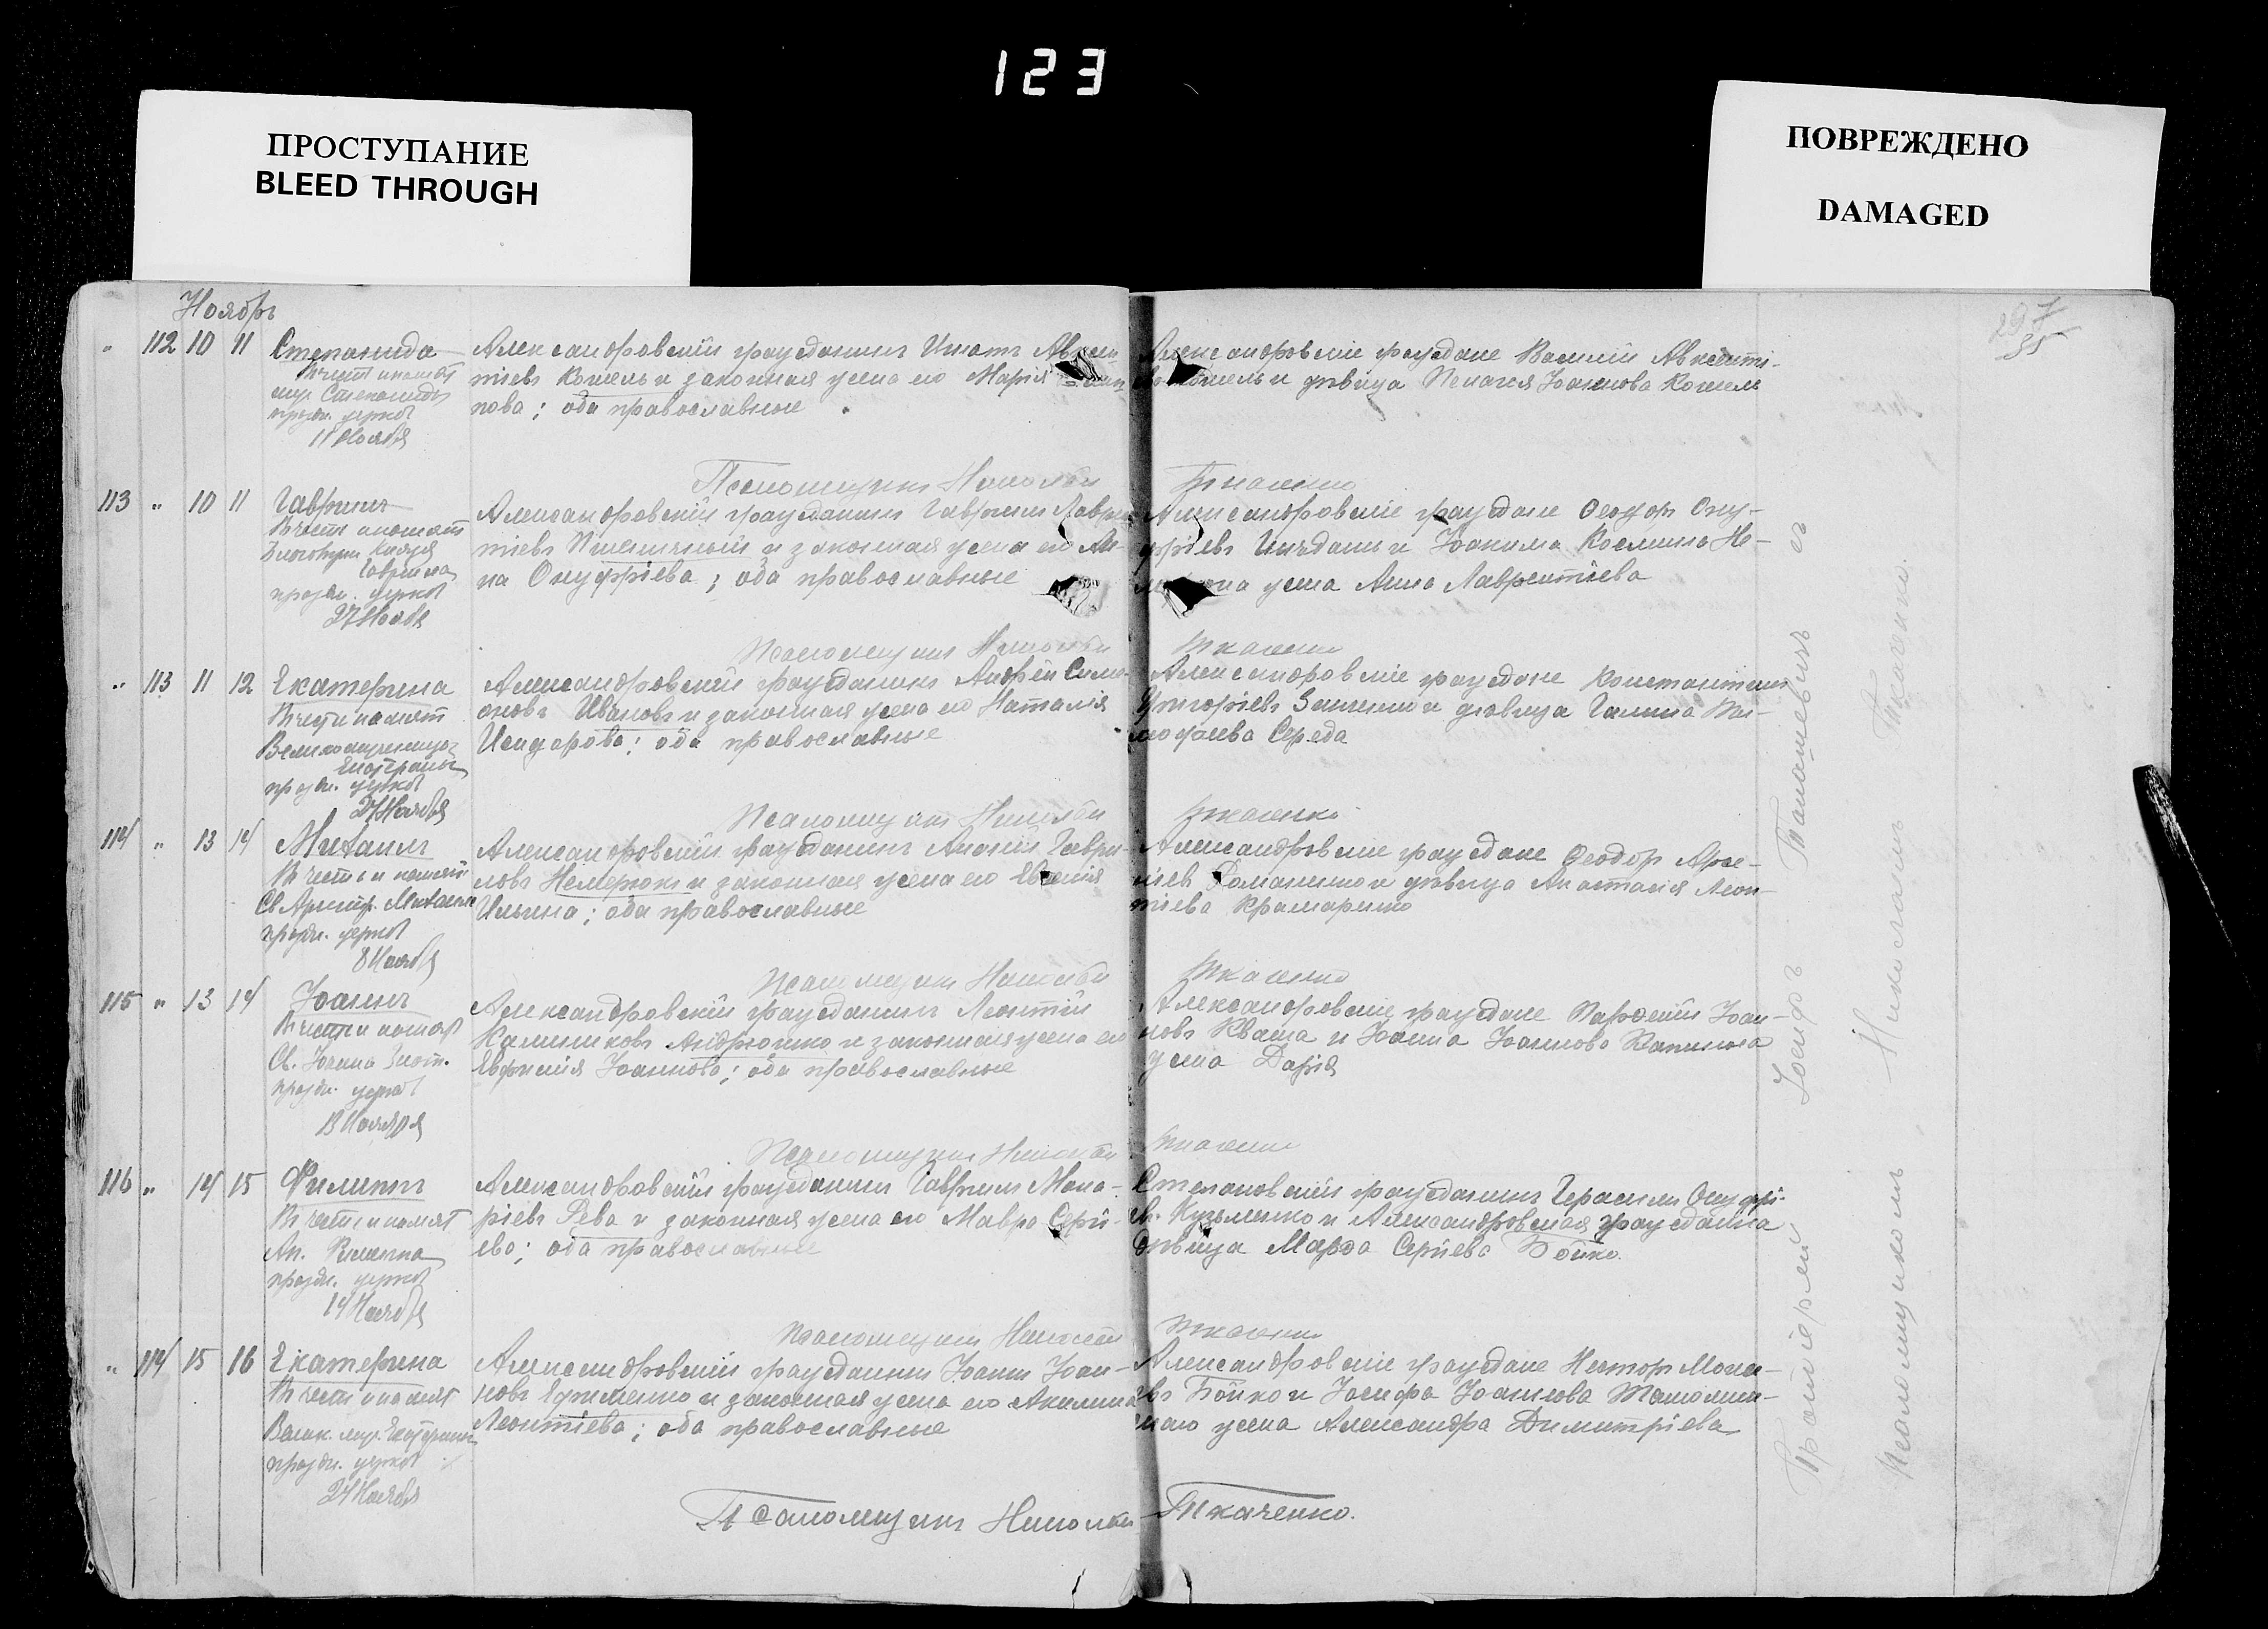 123
ПРОСТУПАНИЕ
BLEED THROUGH
ПОВРЕЖДЕНО
DAMAGED
297
35
Ноябрь
" 112 10 11 Степанида
В честь и память
муч. Степаниды
празд. церков
11 Ноября
Александровскій гражданинъ Игнатъ Авксен-
тіевъ Кошель и законная жена его Марія
нова; оба православные
Александровскіе граждане Василій Авксенті-
Кошель и дѣвица Пелагея Іоаннова Кошель
Псаломщикъ Николай Ткаченко
113 " 10 11 Гавріилъ
В честь и память
Благовѣрн. Князя
Гавріила
праздн. церков
27 Ноября
Александровскій гражданинъ Гавріилъ Лаврен-
тіевъ Пшеничный и законная жена его Ан-
на Онуфріева; оба православные
Александровскіе граждане Ѳеодоръ Ону-
фріевъ и Іоакима Космина Не-
жена Анна Лаврентіева
Псаломщикъ Николай Ткаченко
" 113 11 12 Екатерина
В честь и память
Великомученицы
Екатерины
праздн. церков
24 Ноября
Александровскій гражданинъ Андрей Симе-
оновъ Ивановъ и законная жена его Наталія
Исидорова; оба православные
Александровскіе граждане Константинъ
Григоріевъ Зинченко и дѣвица Галина
Середа
Псаломщикъ Николай Ткаченко
114 " 13 14 Михаилъ
В честь и память
Св. Архистр. Михаила
праздн. церков
8 Ноября
Александровскій гражданинъ Гаври-
ловъ Немерюкъ и законная жена его Евѳимія
Ильина; оба православные
Александровскіе граждане Ѳеодоръ Арсе-
ніевъ Романенко и дѣвица Анастасія Леон-
тіева Крамаренко
Псаломщикъ Николай Ткаченко
115 " 13 14 Іоаннъ
В честь и память
Св. Іоанна Злат.
праздн. церков
13 Ноября
Александровскій гражданинъ Леонтій
Калиниковъ Андрюшко и законная жена его
Евфимія Іоаннова; оба православные
Александровскіе граждане Парѳеній Іоан-
новъ Кваша и Іоанна Іоаннова
жена Дарія
Псаломщикъ Николай Ткаченко
116 " 14 15 Филиппъ
В честь и память
Ап. Филиппа
праздн. церков
14 Ноября
Александровскій гражданинъ Гавріилъ Мака-
ріевъ Рева и законная жена его Мавра Сергі-
ева; оба православные
Степановскій гражданинъ Герасимъ Онуфрі-
ев. Кузьменко и Александровская гражданка
дѣвица Марѳа Сергіева Бойко.
Псаломщикъ Николай Ткаченко
" 114 15 16 Екатерина
В честь и память
Велик. муч. Екатерины
праздн. церков
24 Ноября
Александровскій гражданинъ Іоаннъ Іоан-
новъ Ефименко и законная жена его Акилина
Леонтіева; оба православные
Александровскіе граждане Несторъ
Бойко и Іосифа Іоаннова
жена Александра Димитріева
Псаломщикъ Николай Ткаченко.
Протоіерей Іосифъ Талашевичъ съ
Псаломщикомъ Николаемъ Ткаченко.